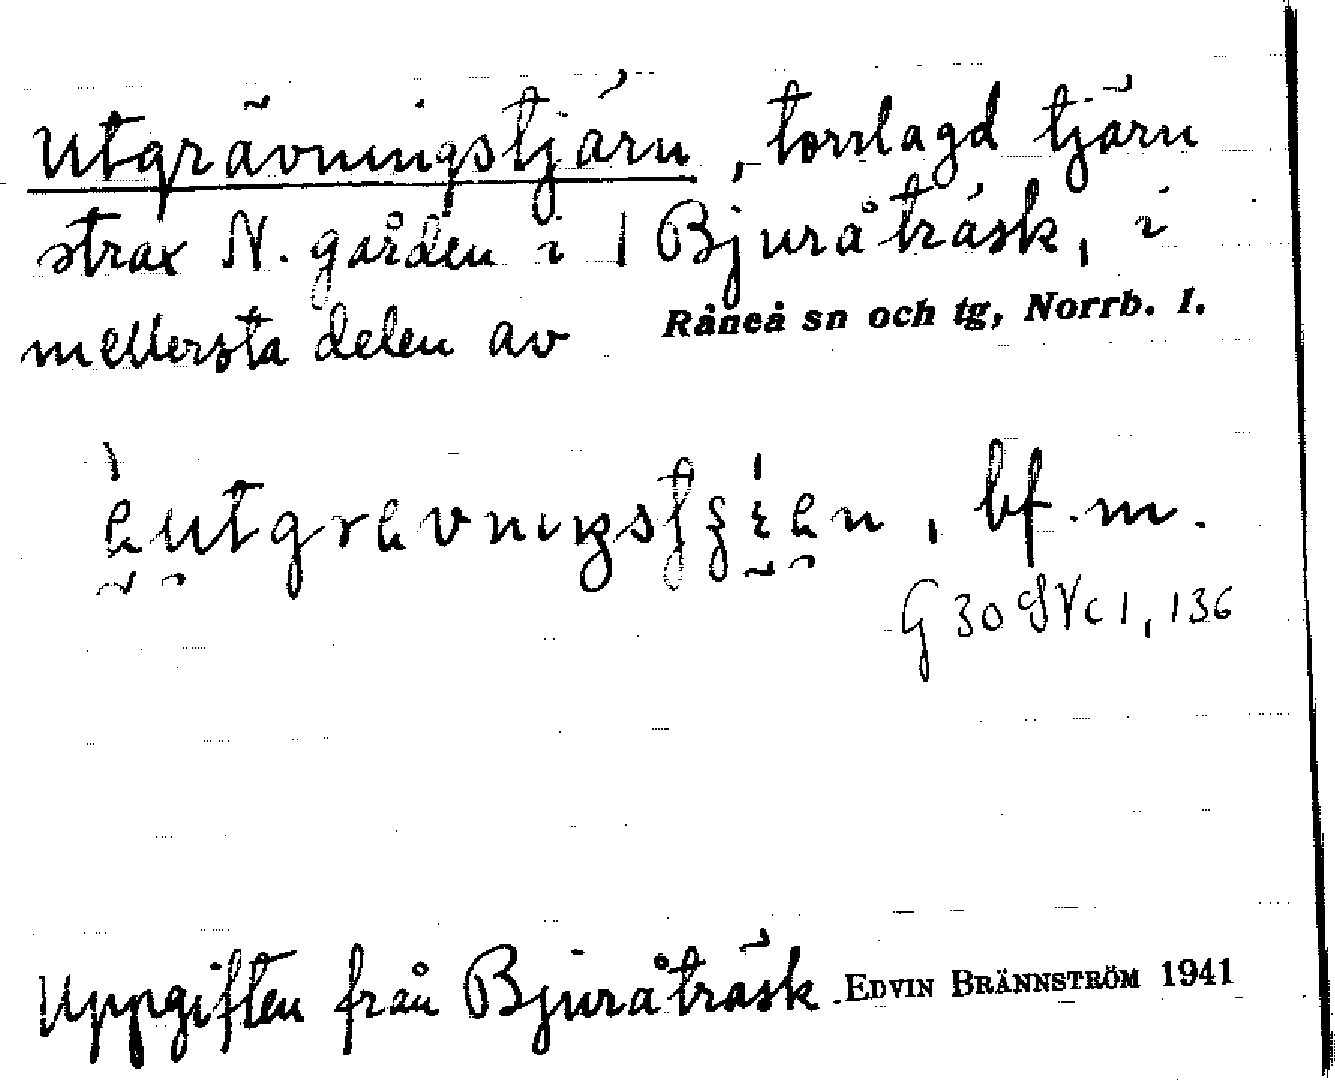 Utgrävningstjärn, torrlagd tjärn
strax N. gården i 1 Bjuråträsk, i
mellersta delen av Råneå sn och tg, Norrb. l.
bf. m.
G 30 SV c 1, 136
Uppgiften från Bjuråträsk. EDVIN BRÄNNSTRÖM 1941